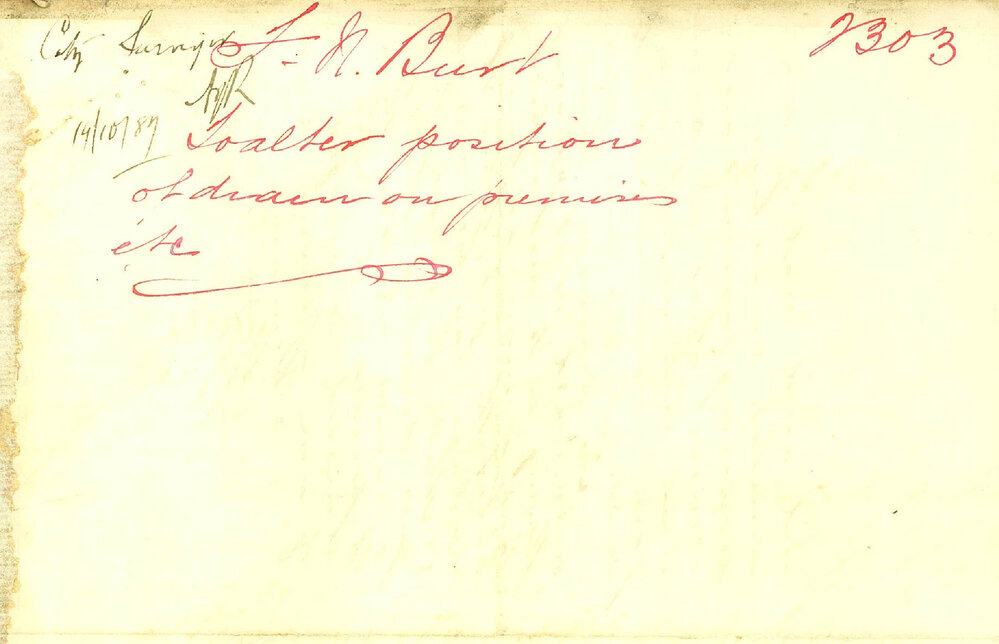 City Surveyor
F. N. Burt
2303
19/10/87
To alter position
of drain on premises
etc